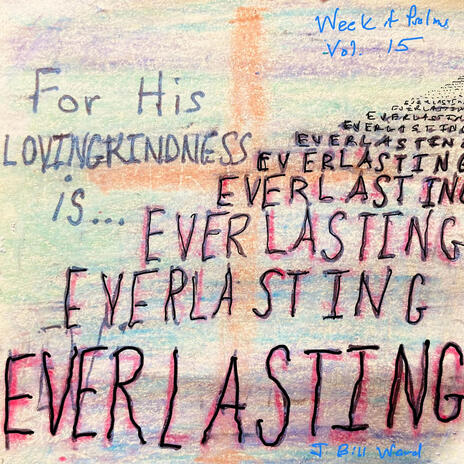 Week of Psalms
Vol. 15
For His
LOVINGKINDNESS
is...
EVERLASTING
EVERLASTING
EVERLASTING
EVERLASTING
EVERLASTING
EVERLASTING
EVERLASTING
EVERLASTING
EVERLASTING
EVERLASTING
J Bill Ward